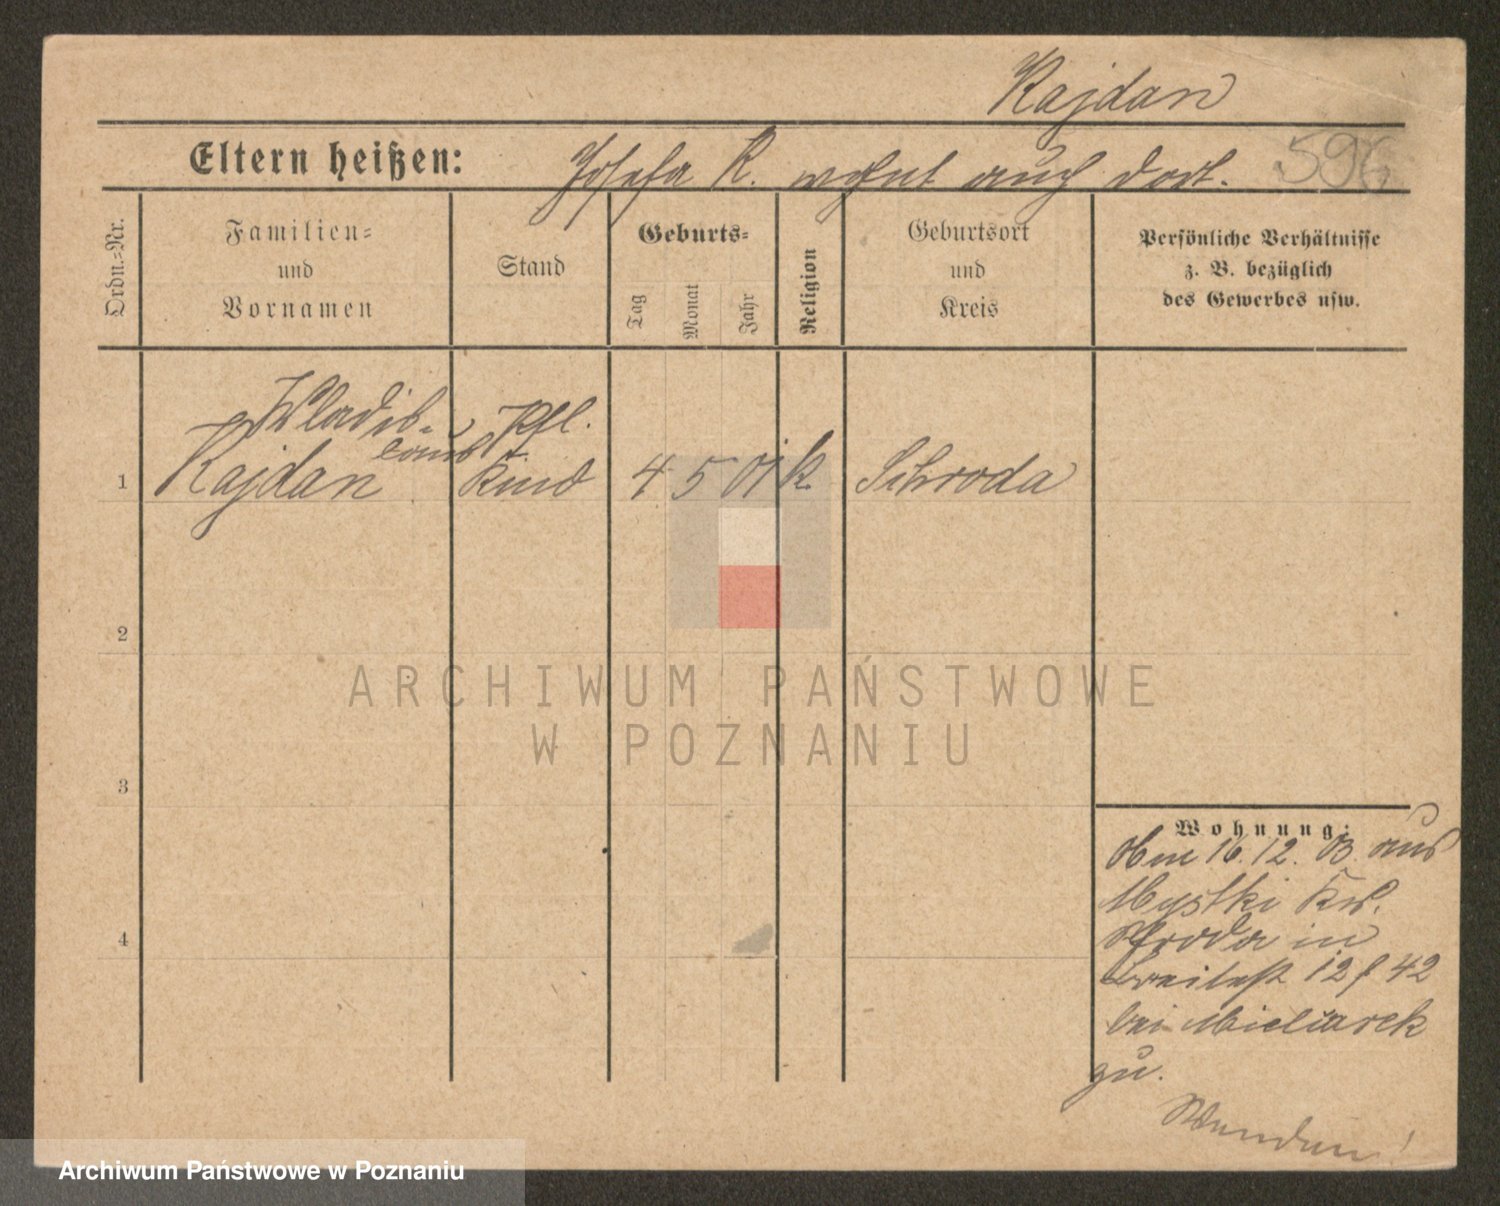 Kajdan
Eltern heißen: Josefa K. wohnt auch dort. 596
Ordn.-Nr.
Familien- und Vornamen
Stand
Geburts-
Tag
Monat
Jahr
Religion
Geburtsort und Kreis
Persönliche Verhältnisse
z. B. bezüglich
des Gewerbes usw.
Wladis-
laus
Pfl.
1 Kajdan Kind 4 5 01 k. Schroda
2
ARCHIWUM PAŃSTWOWE
W POZNANIU
3
Wohnung:
16. 12. 03. aus
Kr.
Schroda in
4
42
bei
zu.
Wenden!
Archiwum Państwowe w Poznaniu